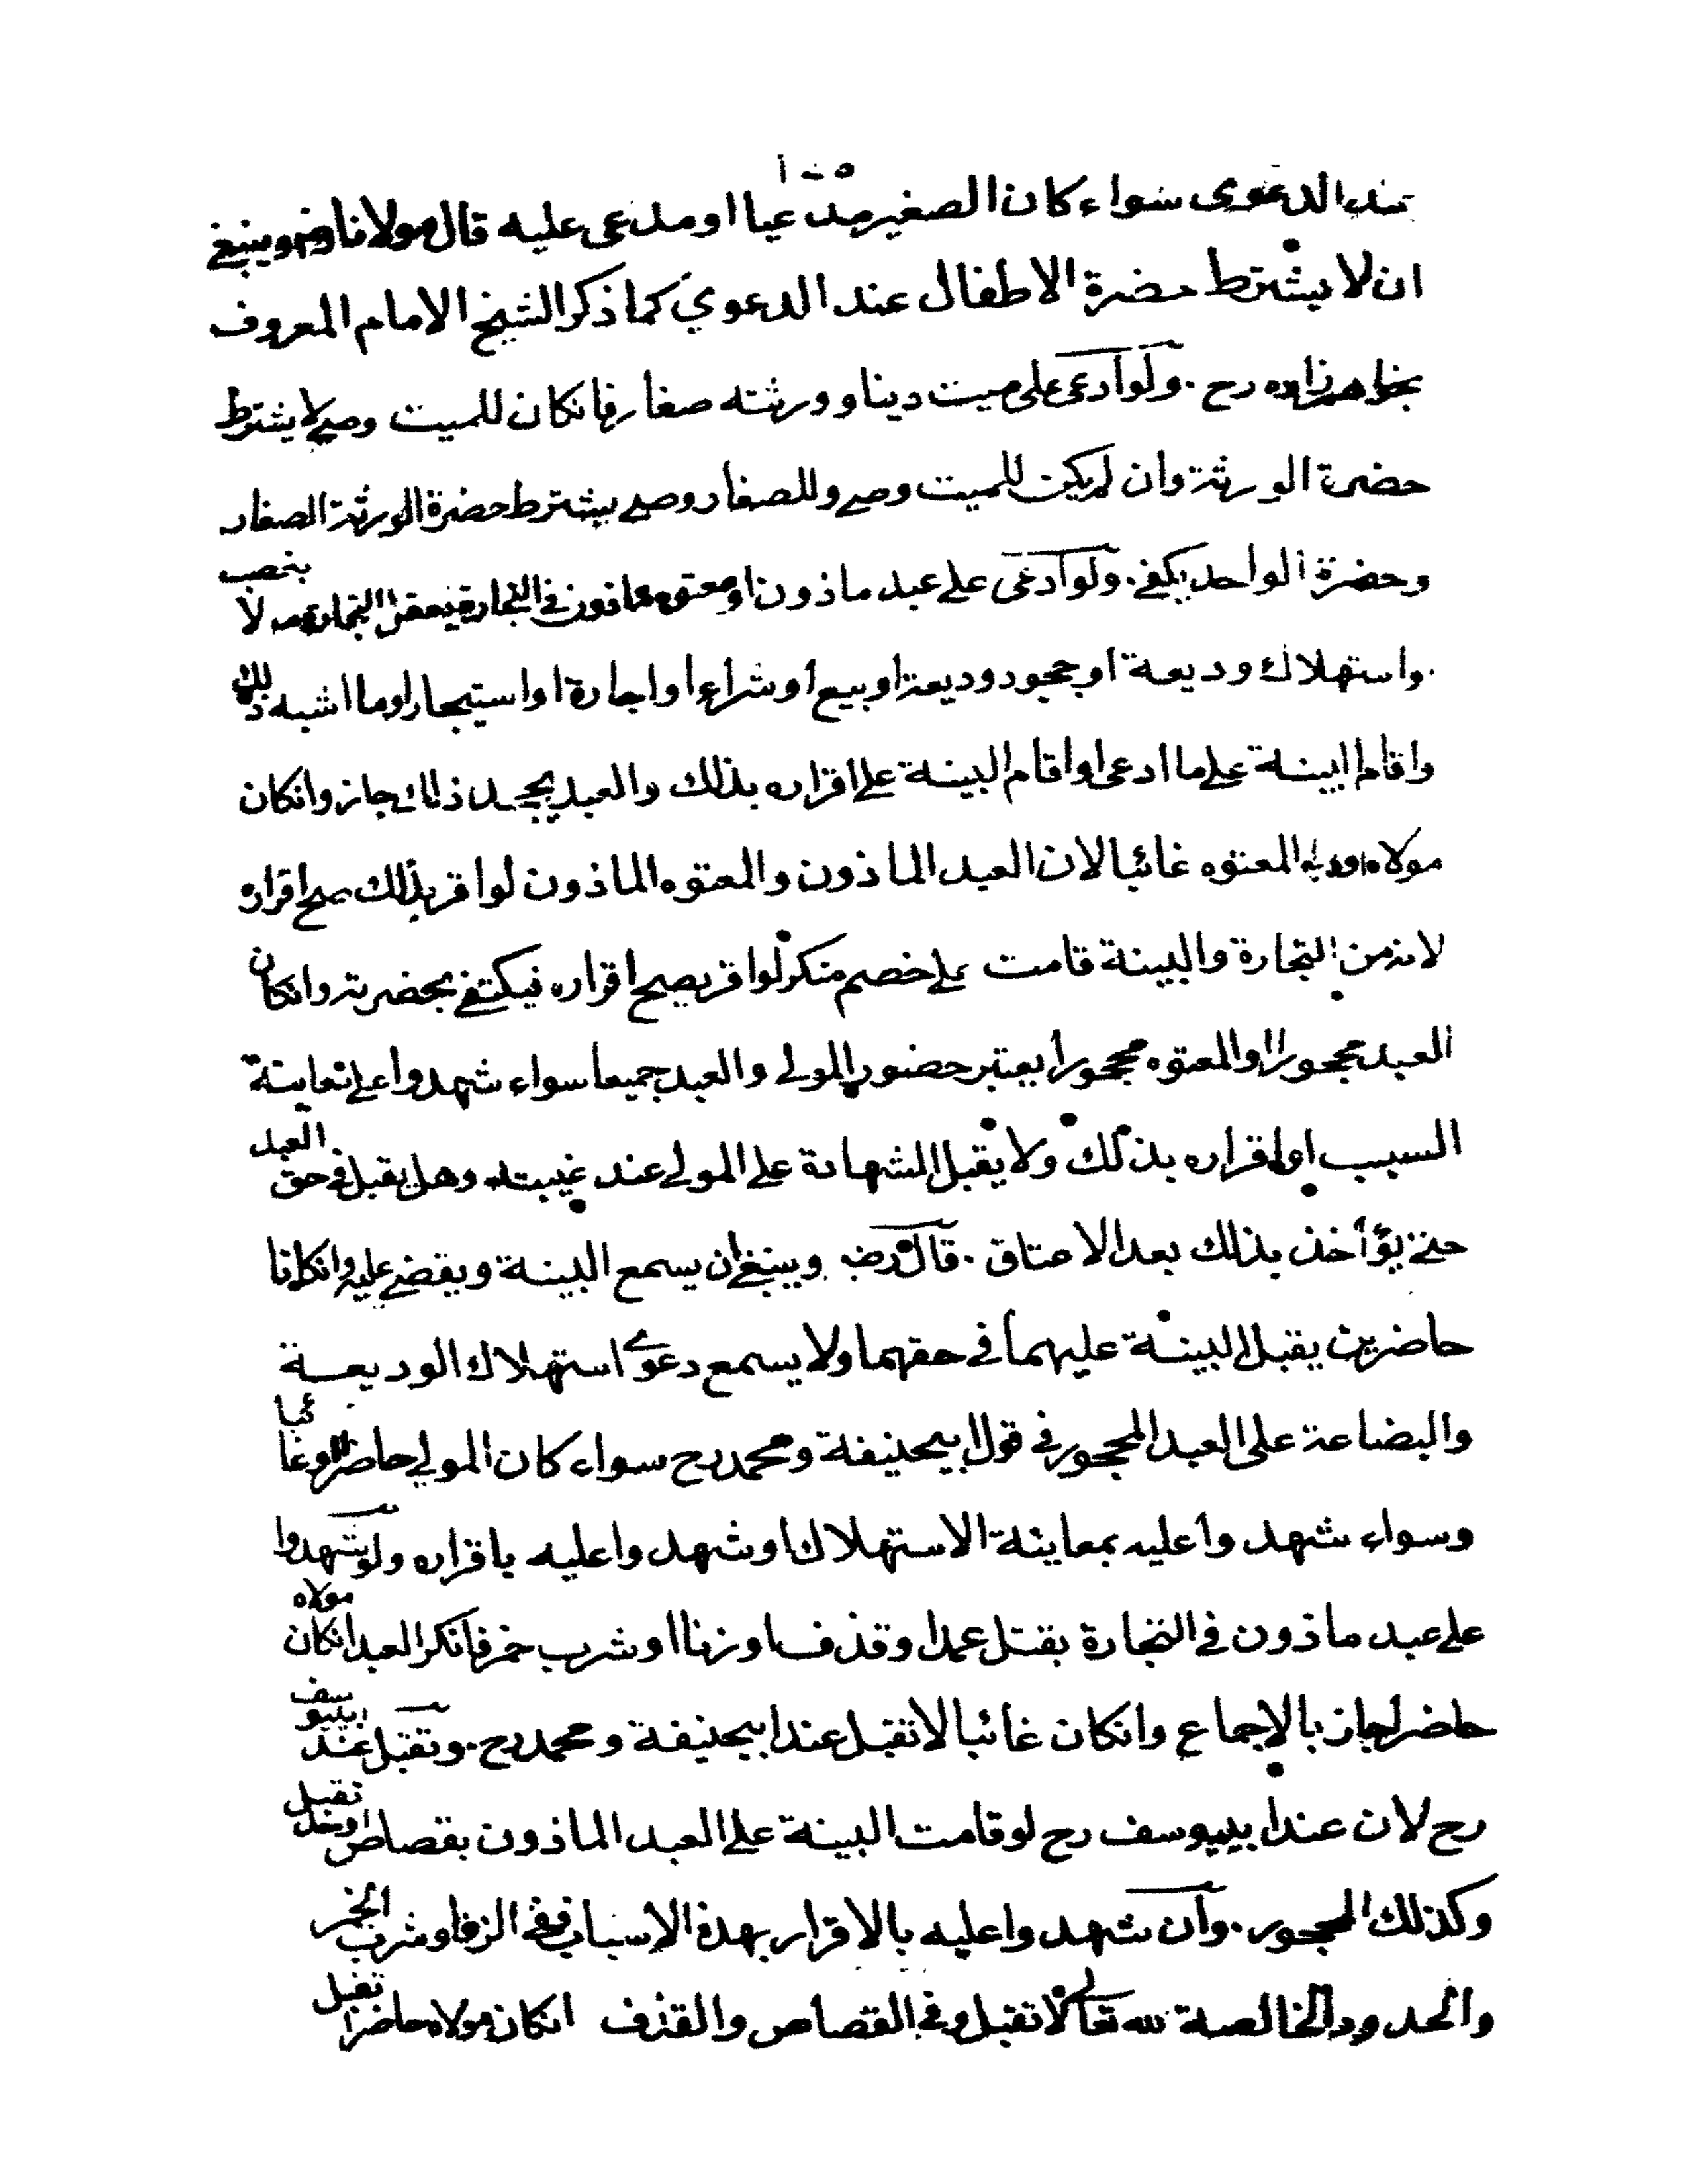 عند الدعوى سواء كان الصغير مدعيا او مدعى عليه قال مولانا رضي وينبغي
ان لا يشترط حضرة الاطفال عند الدعوي كما ذكر الشيخ الامام المعروف
بخواهرزاده رح . ولو ادعى على ميت دينا وورثته صغار فانكان للميت وصي لا يشترط
حضرة الورثة وان لم يكن للميت وصي وللصغار وصي يشترط حضرة الورثة الصغار
وحضرة الواحد يكفي . ولو ادعى على عبد ماذون او معتوه ماذون في التجارة يعقل التجارة مالا بغصب
واستهلاك وديعة او جحود وديعة او بيع او شراء او اجارة او استيجار او ما اشبه ذلك
واقام البينة على ما ادعى او اقام البينة على اقراره بذلك والعبد يجحد ذلك جاز وانكان
مولاه او ولي المعتوه غائبا لان العبد الماذون والمعتوه الماذون لو اقر بذلك صح اقراره
لانه من التجارة والبينة قامت على خصم منكر لو اقر يصح اقراره فيكتفي بحضرته وانكان
العبد محجورا او المعتوه محجورا يعتبر حضور المولى والعبد جميعا سواء شهدوا على معاينة
السبب او اقراره بذلك ولا يقبل الشهادة على المولى عند غيبته وهل يقبل في حق العبد
حتى يؤاخذ بذلك بعد الاعتاق . قال رضي وينبغي ان يسمع البينة ويقضي عليه وانكانا
حاضرين يقبل البينة عليهما في حقهما ولا يسمع دعوى استهلاك الوديعة
والبضاعة على العبد المحجور في قول ابيحنيفة ومحمد رح سواء كان المولى حاضرا او غائبا
وسواء شهدوا عليه بمعاينة الاستهلاك او شهدوا عليه باقراره ولو شهدوا
على عبد ماذون في التجارة بقتل عمدا وقذف او زنا او شرب خمر فانكر العبد انكان مولاه
حاضرا جاز بالاجماع وانكان غائبا لا تقبل عند ابيحنيفة ومحمد رح . وتقبل عند ابييوسف
رح لان عند ابييوسف رح لو قامت البينة على العبد الماذون بقصاص او حد تقبل
وكذلك المحجور . وان شهدوا عليه بالاقرار بهذه الاسباب ففي الزنا وشرب الخمر
والحدود الخالصة لله تعالى لا تقبل وفي القصاص والقذف انكان مولاه حاضرا تقبل